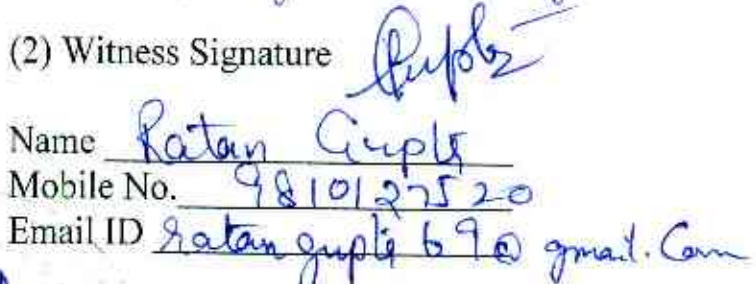 (2) Witness Signature Gupta
Name Ratan Gupta
Mobile No. 9810127520
Email ID ratangupta69@gmail.com